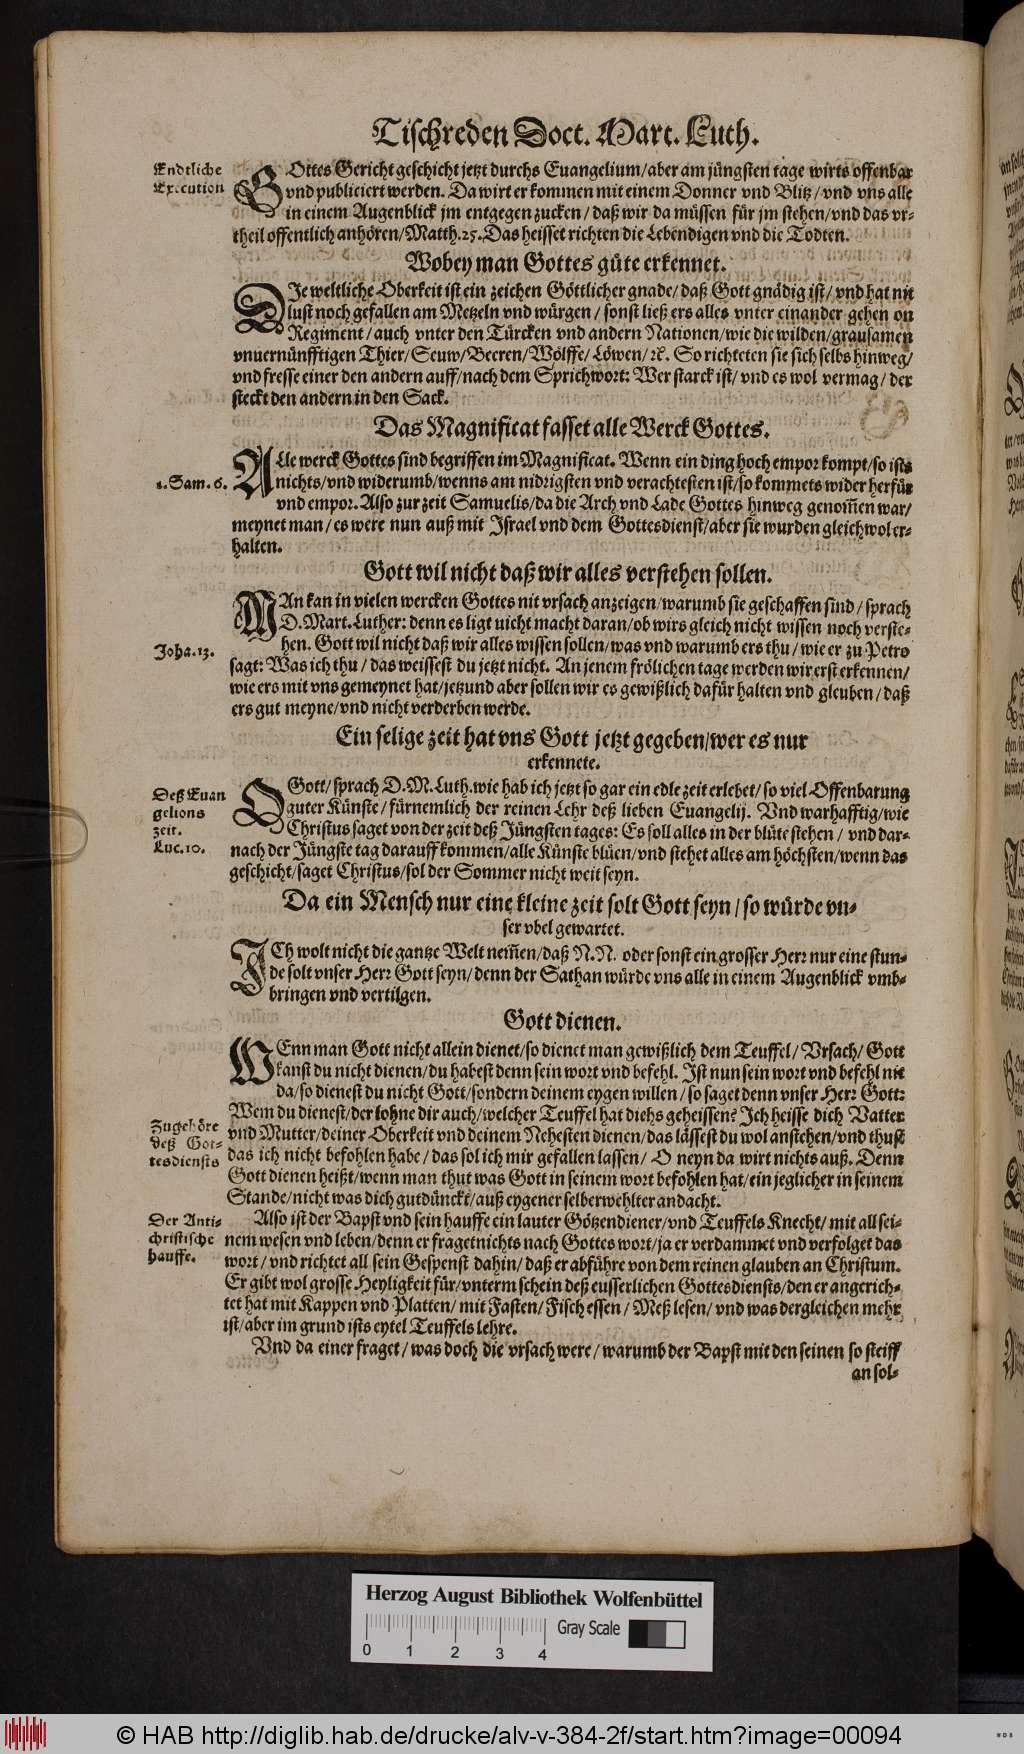 Tischreden Doct. Mart. Luth.
Endtliche
Execution
GOttes Gericht geschicht jetzt durchs Euangelium/aber am jüngsten tage wirts offenbar
vnd publiciert werden. Da wirt er kommen mit einem Donner vnd Blitz/vnd vns alle
in einem Augenblick jm entgegen zucken/daß wir da müssen für jm stehen/vnd das vr-
theil offentlich anhören/Matth.25. Das heisset richten die Lebendigen vnd die Todten.
Wobey man Gottes güte erkennet.
DIe weltliche Oberkeit ist ein zeichen Göttlicher gnade/daß Gott gnädig ist/vnd hat nit
lust noch gefallen am Metzeln vnd würgen/sonst ließ ers alles vnter einander gehen on
Regiment/auch vnter den Türcken vnd andern Nationen/wie die wilden/grausamen
vnuernünfftigen Thier/Seuw/Beeren/Wölffe/Löwen/ꝛc. So richteten sie sich selbs hinweg/
vnd fresse einer den andern auff/nach dem Sprichwort: Wer starck ist/vnd es wol vermag/der
steckt den andern in den Sack.
Das Magnificat fasset alle Werck Gottes.
ALle werck Gottes sind begriffen im Magnificat. Wenn ein ding hoch empor kompt/so ists
1. Sam. 6.
nichts/vnd widerumb/wenns am nidrigsten vnd verachtesten ist/so kommets wider herfür
vnd empor. Also zur zeit Samuelis/da die Arch vnd Lade Gottes hinweg genom̄en war/
meynet man/es were nun auß mit Israel vnd dem Gottesdienst/aber sie wurden gleichwol er-
halten.
Gott wil nicht daß wir alles verstehen sollen.
MAn kan in vielen wercken Gottes nit vrsach anzeigen/warumb sie geschaffen sind/sprach
D. Mart. Luther: denn es ligt nicht macht daran/ob wirs gleich nicht wissen noch verste-
hen. Gott wil nicht daß wir alles wissen sollen/was vnd warumb ers thu/wie er zu Petro
Joha. 13.
sagt: Was ich thu/das weissest du jetzt nicht. An jenem frölichen tage werden wir erst erkennen/
wie ers mit vns gemeynet hat/jetzund aber sollen wir es gewißlich dafür halten vnd gleuben/daß
ers gut meyne/vnd nicht verderben werde.
Ein selige zeit hat vns Gott jetzt gegeben/wer es nur
erkennete.
Deß Euan
gelions
zeit.
Luc. 10.
O Gott/sprach D. M. Luth. wie hab ich jetzt so gar ein edle zeit erlebet/so viel Offenbarung
guter Künste/fürnemlich der reinen Lehr deß lieben Euangelij. Vnd warhafftig/wie
Christus saget von der zeit deß Jüngsten tages: Es soll alles in der blüte stehen/vnd dar-
nach der Jüngste tag darauff kommen/alle Künste blüen/vnd stehet alles am höchsten/wenn das
geschicht/saget Christus/sol der Sommer nicht weit seyn.
Da ein Mensch nur eine kleine zeit solt Gott seyn/so würde vn-
ser vbel gewartet.
ICh wolt nicht die gantze Welt nem̄en/daß N. N. oder sonst ein grosser Herr nur eine stun-
de solt vnser Herr Gott seyn/denn der Sathan würde vns alle in einem Augenblick vmb-
bringen vnd vertilgen.
Gott dienen.
WEnn man Gott nicht allein dienet/so dienet man gewißlich dem Teuffel/Vrsach/Gott
kanst du nicht dienen/du habest denn sein wort vnd befehl. Ist nun sein wort vnd befehl nit
da/so dienest du nicht Gott/sondern deinem eygen willen/so saget denn vnser Herr Gott:
Wem du dienest/der lohne dir auch/welcher Teuffel hat diehs geheissen? Ich heisse dich Vatter
Zugehöre
deß Got-
tesdiensts
vnd Mutter/deiner Oberkeit vnd deinem Nehesten dienen/das lässest du wol anstehen/vnd thust
das ich nicht befohlen habe/das sol ich mir gefallen lassen/O neyn da wirt nichts auß. Denn
Gott dienen heißt/wenn man thut was Gott in seinem wort befohlen hat/ein jeglicher in seinem
Stande/nicht was dich gutdünckt/auß eygener selberwehlter andacht.
Der Anti-
christische
hauffe.
Also ist der Bapst vnd sein hauffe ein lauter Götzendiener/vnd Teuffels Knecht/mit all sei-
nem wesen vnd leben/denn er fraget nichts nach Gottes wort/ja er verdammet vnd verfolget das
wort/vnd richtet all sein Gespenst dahin/daß er abführe von dem reinen glauben an Christum.
Er gibt wol grosse Heyligkeit für/vnterm schein deß eusserlichen Gottesdiensts/den er angerich-
tet hat mit Kappen vnd Platten/mit Fasten/Fisch essen/Meß lesen/vnd was dergleichen mehr
ist/aber im grund ists eytel Teuffels lehre.
Vnd da einer fraget/was doch die vrsach were/warumb der Bapst mit den seinen so steiff
an sol-
Herzog August Bibliothek Wolfenbüttel
Gray Scale
0 1 2 3 4
© HAB http://diglib.hab.de/drucke/alv-v-384-2f/start.htm?image=00094